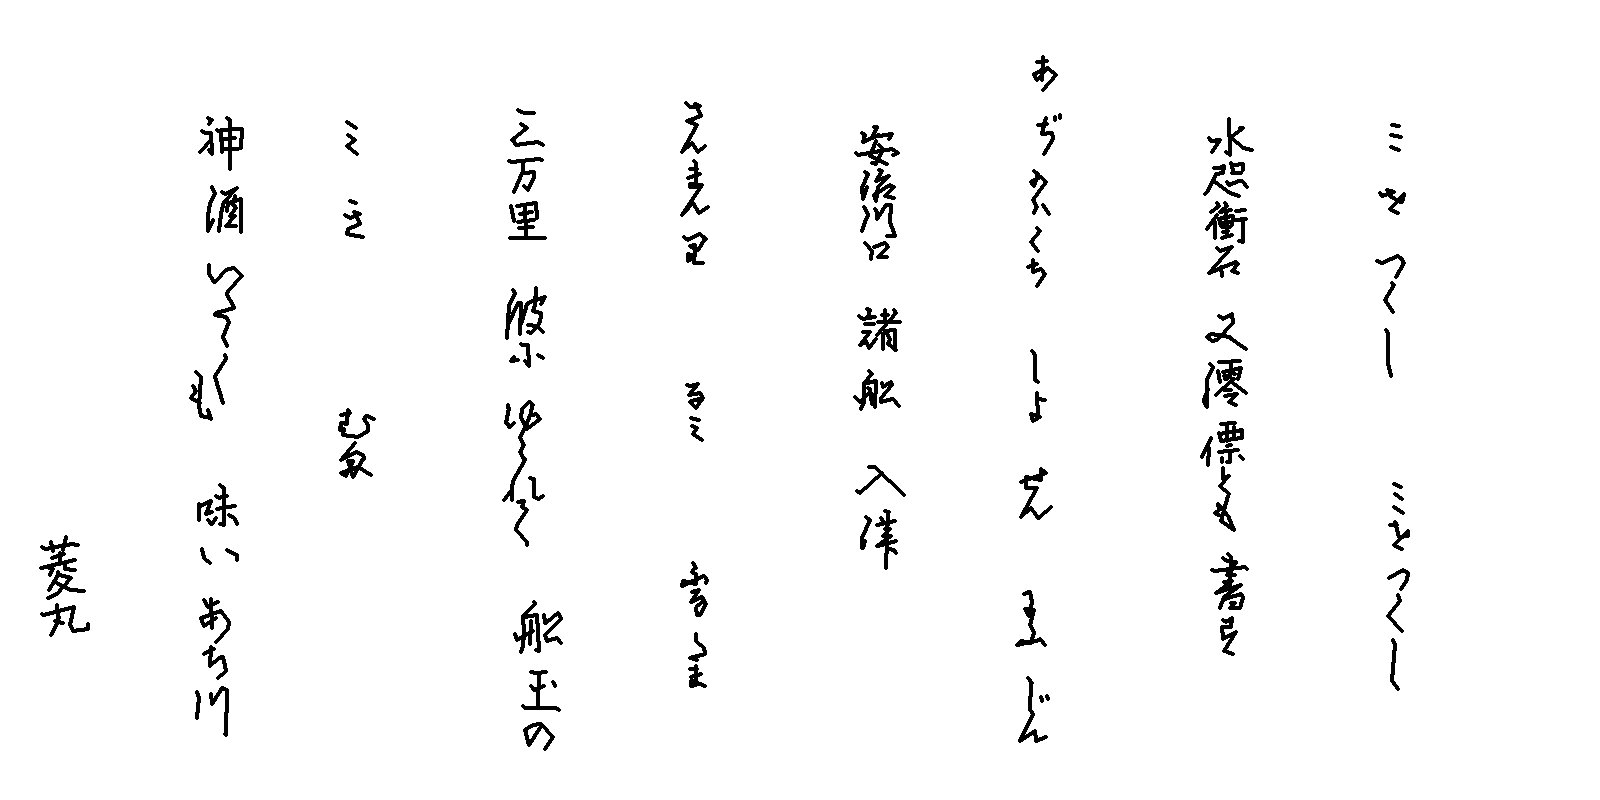 ミをつくし　ミをつくし
水咫衝石 又澪標とも 書り
あぢかハくち しよ せん まふ じん
安治川口 諸船 入津
さんまん里 るミ 
三万里 波に ゆられて 船玉の
ミき む
神酒いたゝくも 味いあち川
菱丸